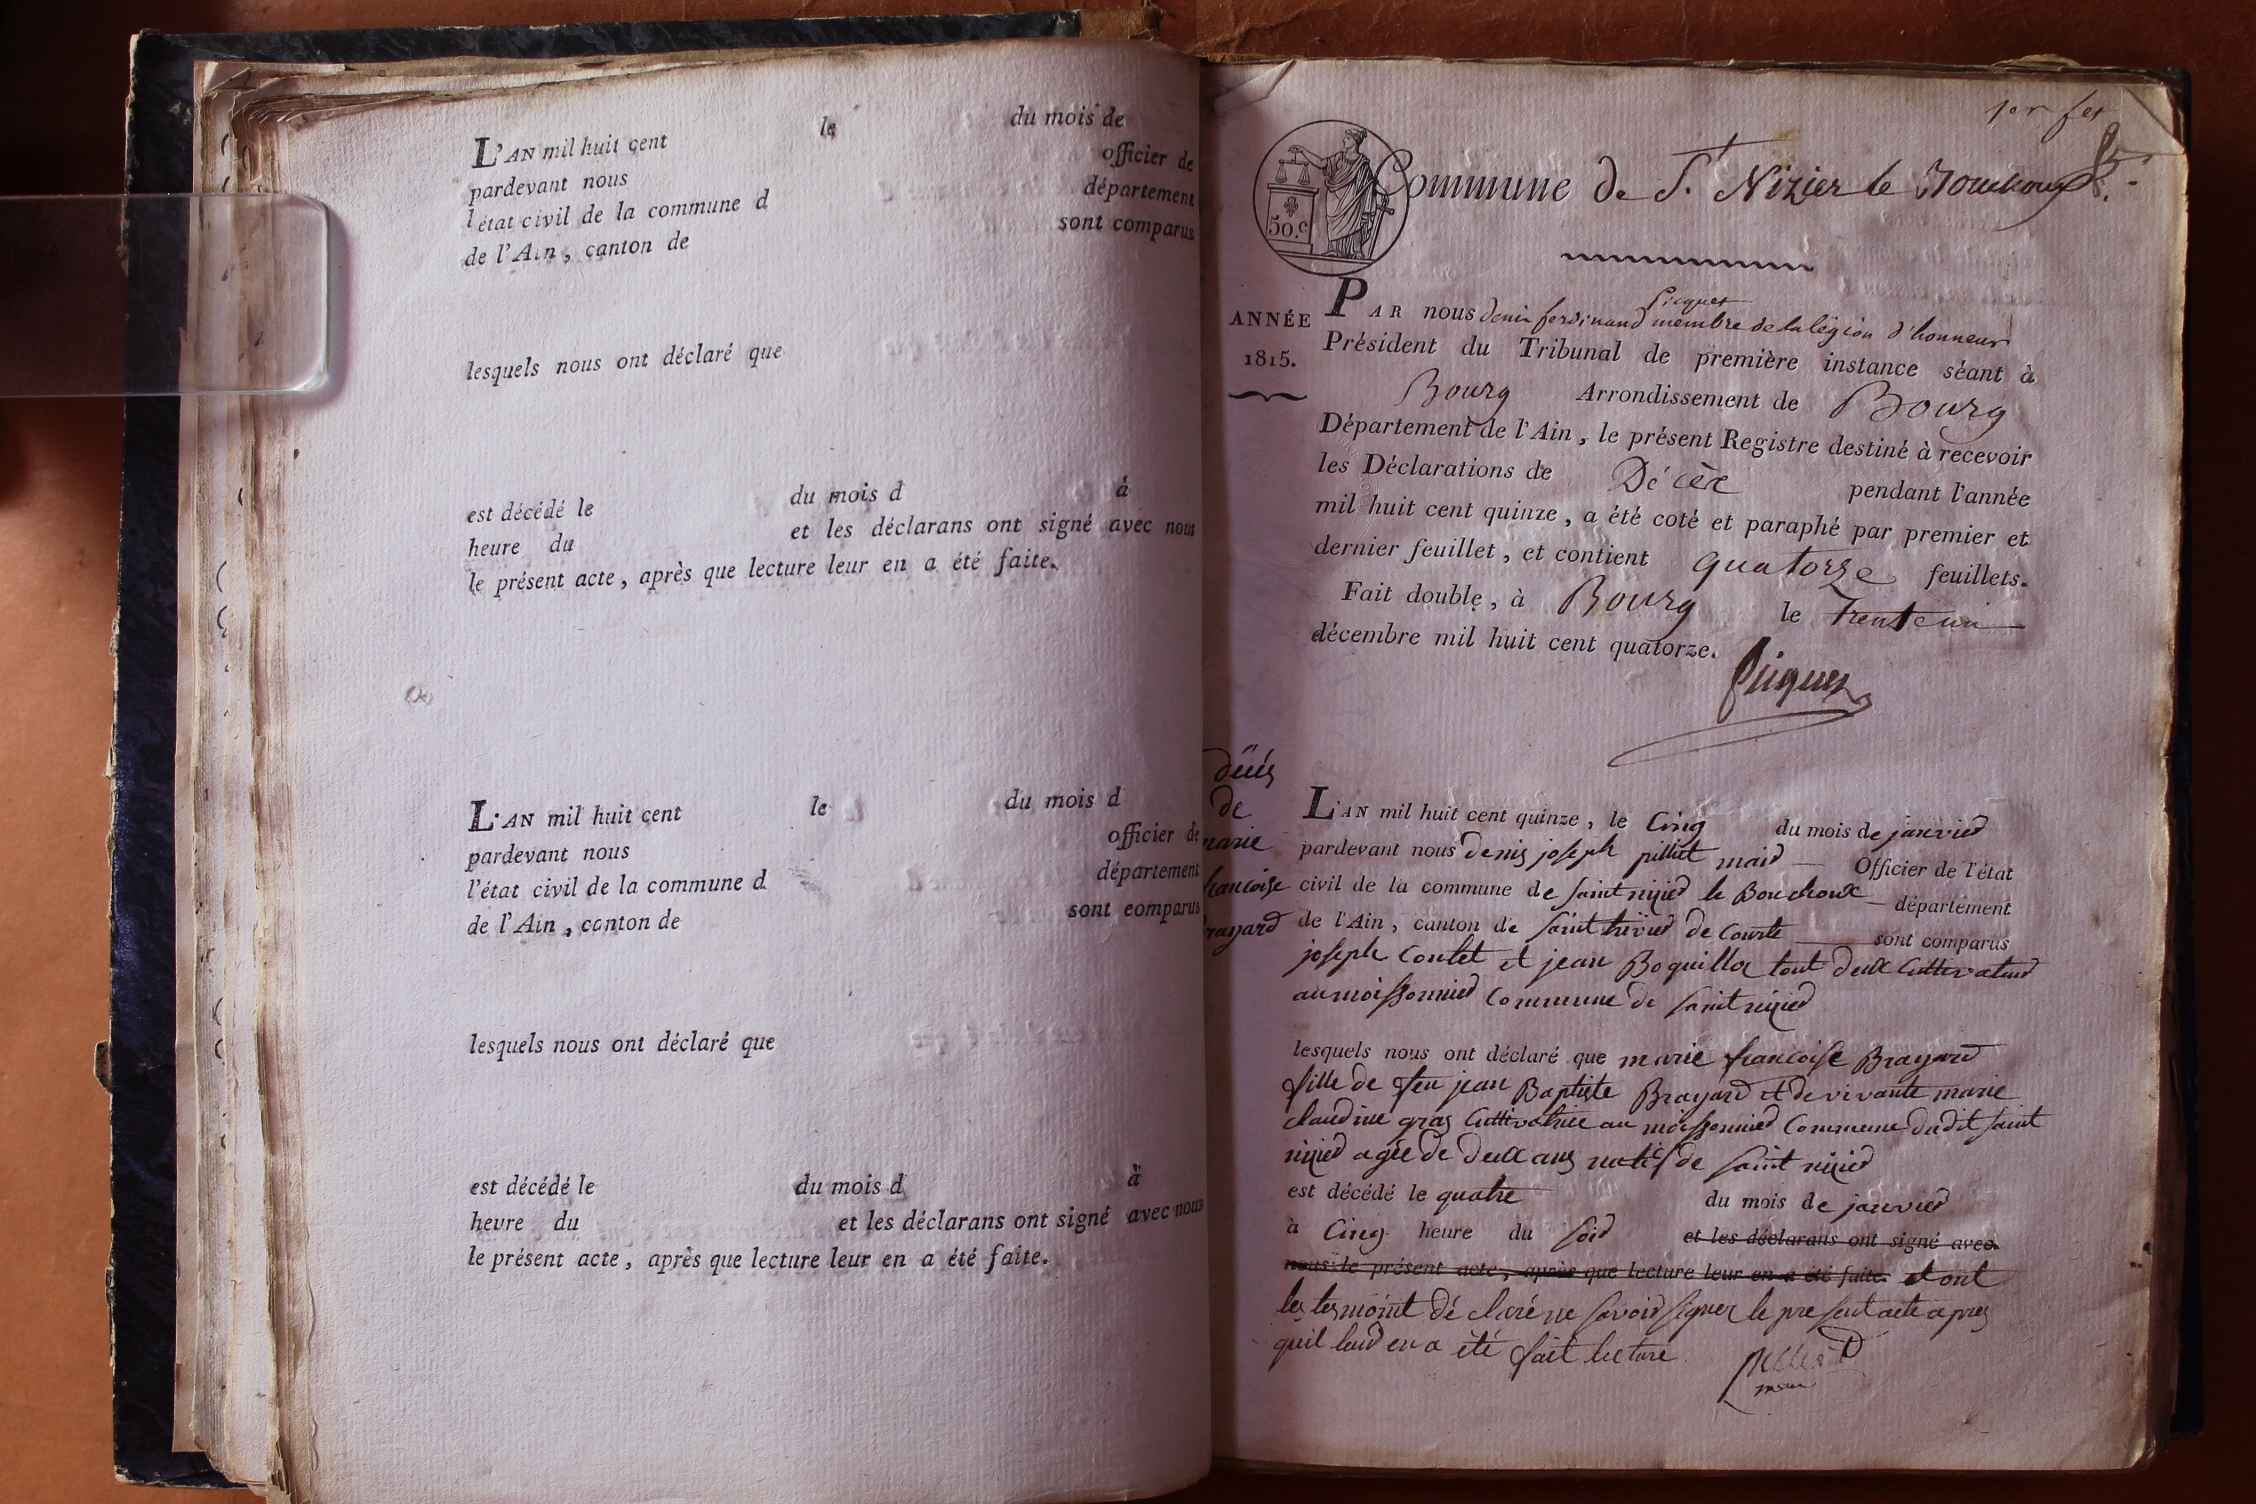 L'AN mil huit cent le du mois de
pardevant nous officier de
l'état civil de la commune d département
de l'Ain, canton de sont comparus
lesquels nous ont déclaré que
est décédé le du mois d à
heure du et les déclarans ont signé avec nous
le présent acte, après que lecture leur en a été faite.
L'AN mil huit cent le du mois d
pardevant nous officier de
l'état civil de la commune d département
de l'Ain, canton de sont comparus
lesquels nous ont déclaré que
est décédé le du mois d à
heure du et les déclarans ont signé avec nous
le présent acte, après que lecture leur en a été faite.
1er fet
50.c
Commune de St. Nizier le Bouchoux
ANNÉE
1815.
Picquet
PAR nous denis ferdinand membre de la légion d'honneur
Président du Tribunal de première instance séant à
Bourg Arrondissement de Bourg
Département de l'Ain, le présent Registre destiné à recevoir
les Déclarations de Décès pendant l'année
mil huit cent quinze, a été coté et paraphé par premier et
dernier feuillet, et contient quatorze feuillets.
Fait double, à Bourg le Trente un
décembre mil huit cent quatorze.
Picquet
de
marie
francoise
Brayard
L'AN mil huit cent quinze, le Cinq du mois de janvier
pardevant nous denis joseph pilliet maire Officier de l'état
civil de la commune de saint nizier le Bouchoux département
de l'Ain, canton de saint trivier de Courte sont comparus
joseph Contet et jean Boquillod tout deux Cultivateur
au moissonnier Commune de saint nizier
lesquels nous ont déclaré que marie francoise Brayard
fille de feu jean Baptiste Brayard et de vivante marie
claudine gras Cultivatrice au moissonnier Commune dudit saint
nizier agée de deux ans natif de saint nizier
est décédé le quatre du mois de janvier
à Cinq heure du soir et les déclarans ont signé avec
nous le présent acte, après que lecture leur en a été faite. et ont
les tesmoint dé claré ne savoir signer le present acte apres
quil leur en a été fait lecture